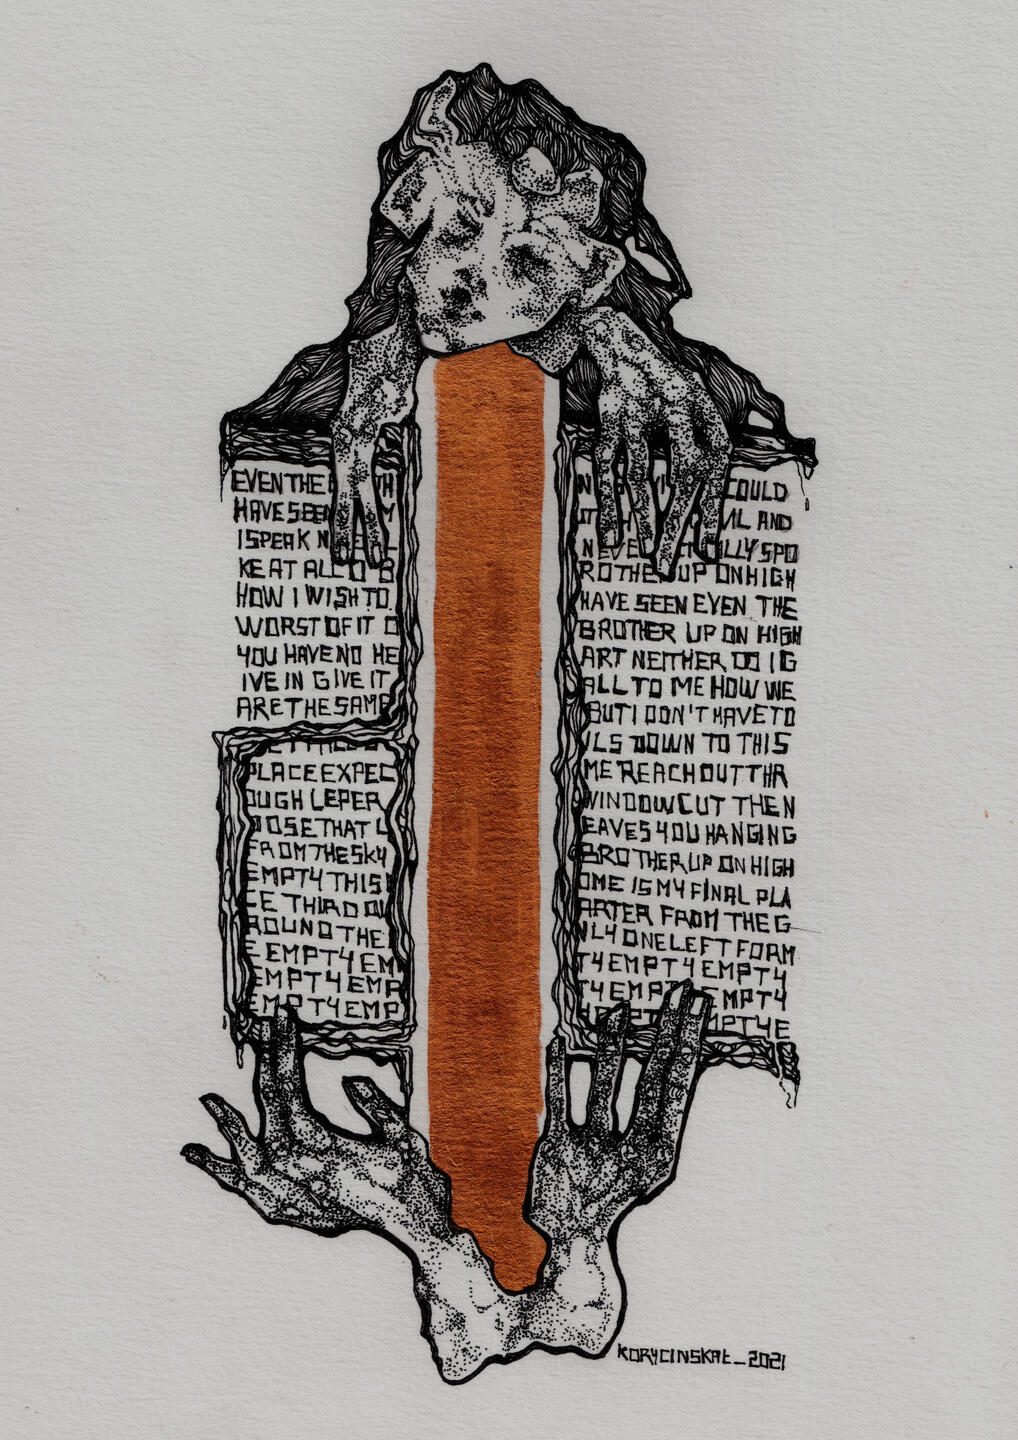 EVEN THE
HAVE SEEN
I SPEAK
KE AT ALL O B
HOW I WISH TO
WORST OF IT O
YOU HAVE NO HE
IVE IN GIVE IT
ARE THE SAME
PLACE EXPEC
OUGH LEPER
OOSE THAT L
FROM THE SKY
EMPTY THIS
CE THIRD QU
ROUND THE
E EMPTY EM
EMPTY EMP
EMPTY EMP
COULD
AND
NEVE LLY SPO
ROTHER UP ON HIGH
HAVE SEEN EVEN THE
BROTHER UP ON HIGH
ART NEITHER DO I G
ALL TO ME HOW WE
BUT I DON'T HAVE TO
ILS DOWN TO THIS
ME REACH OUT THR
WINDOW CUT THEN
EAVES YOU HANGING
BROTHER UP ON HIGH
OME IS MY FINAL PLA
ARTER FROM THE G
NLY ONE LEFT FORM
TY EMPTY EMPTY
TY EMPT EMPTY
EMPTY E
KORYCINSKAŁ_2021